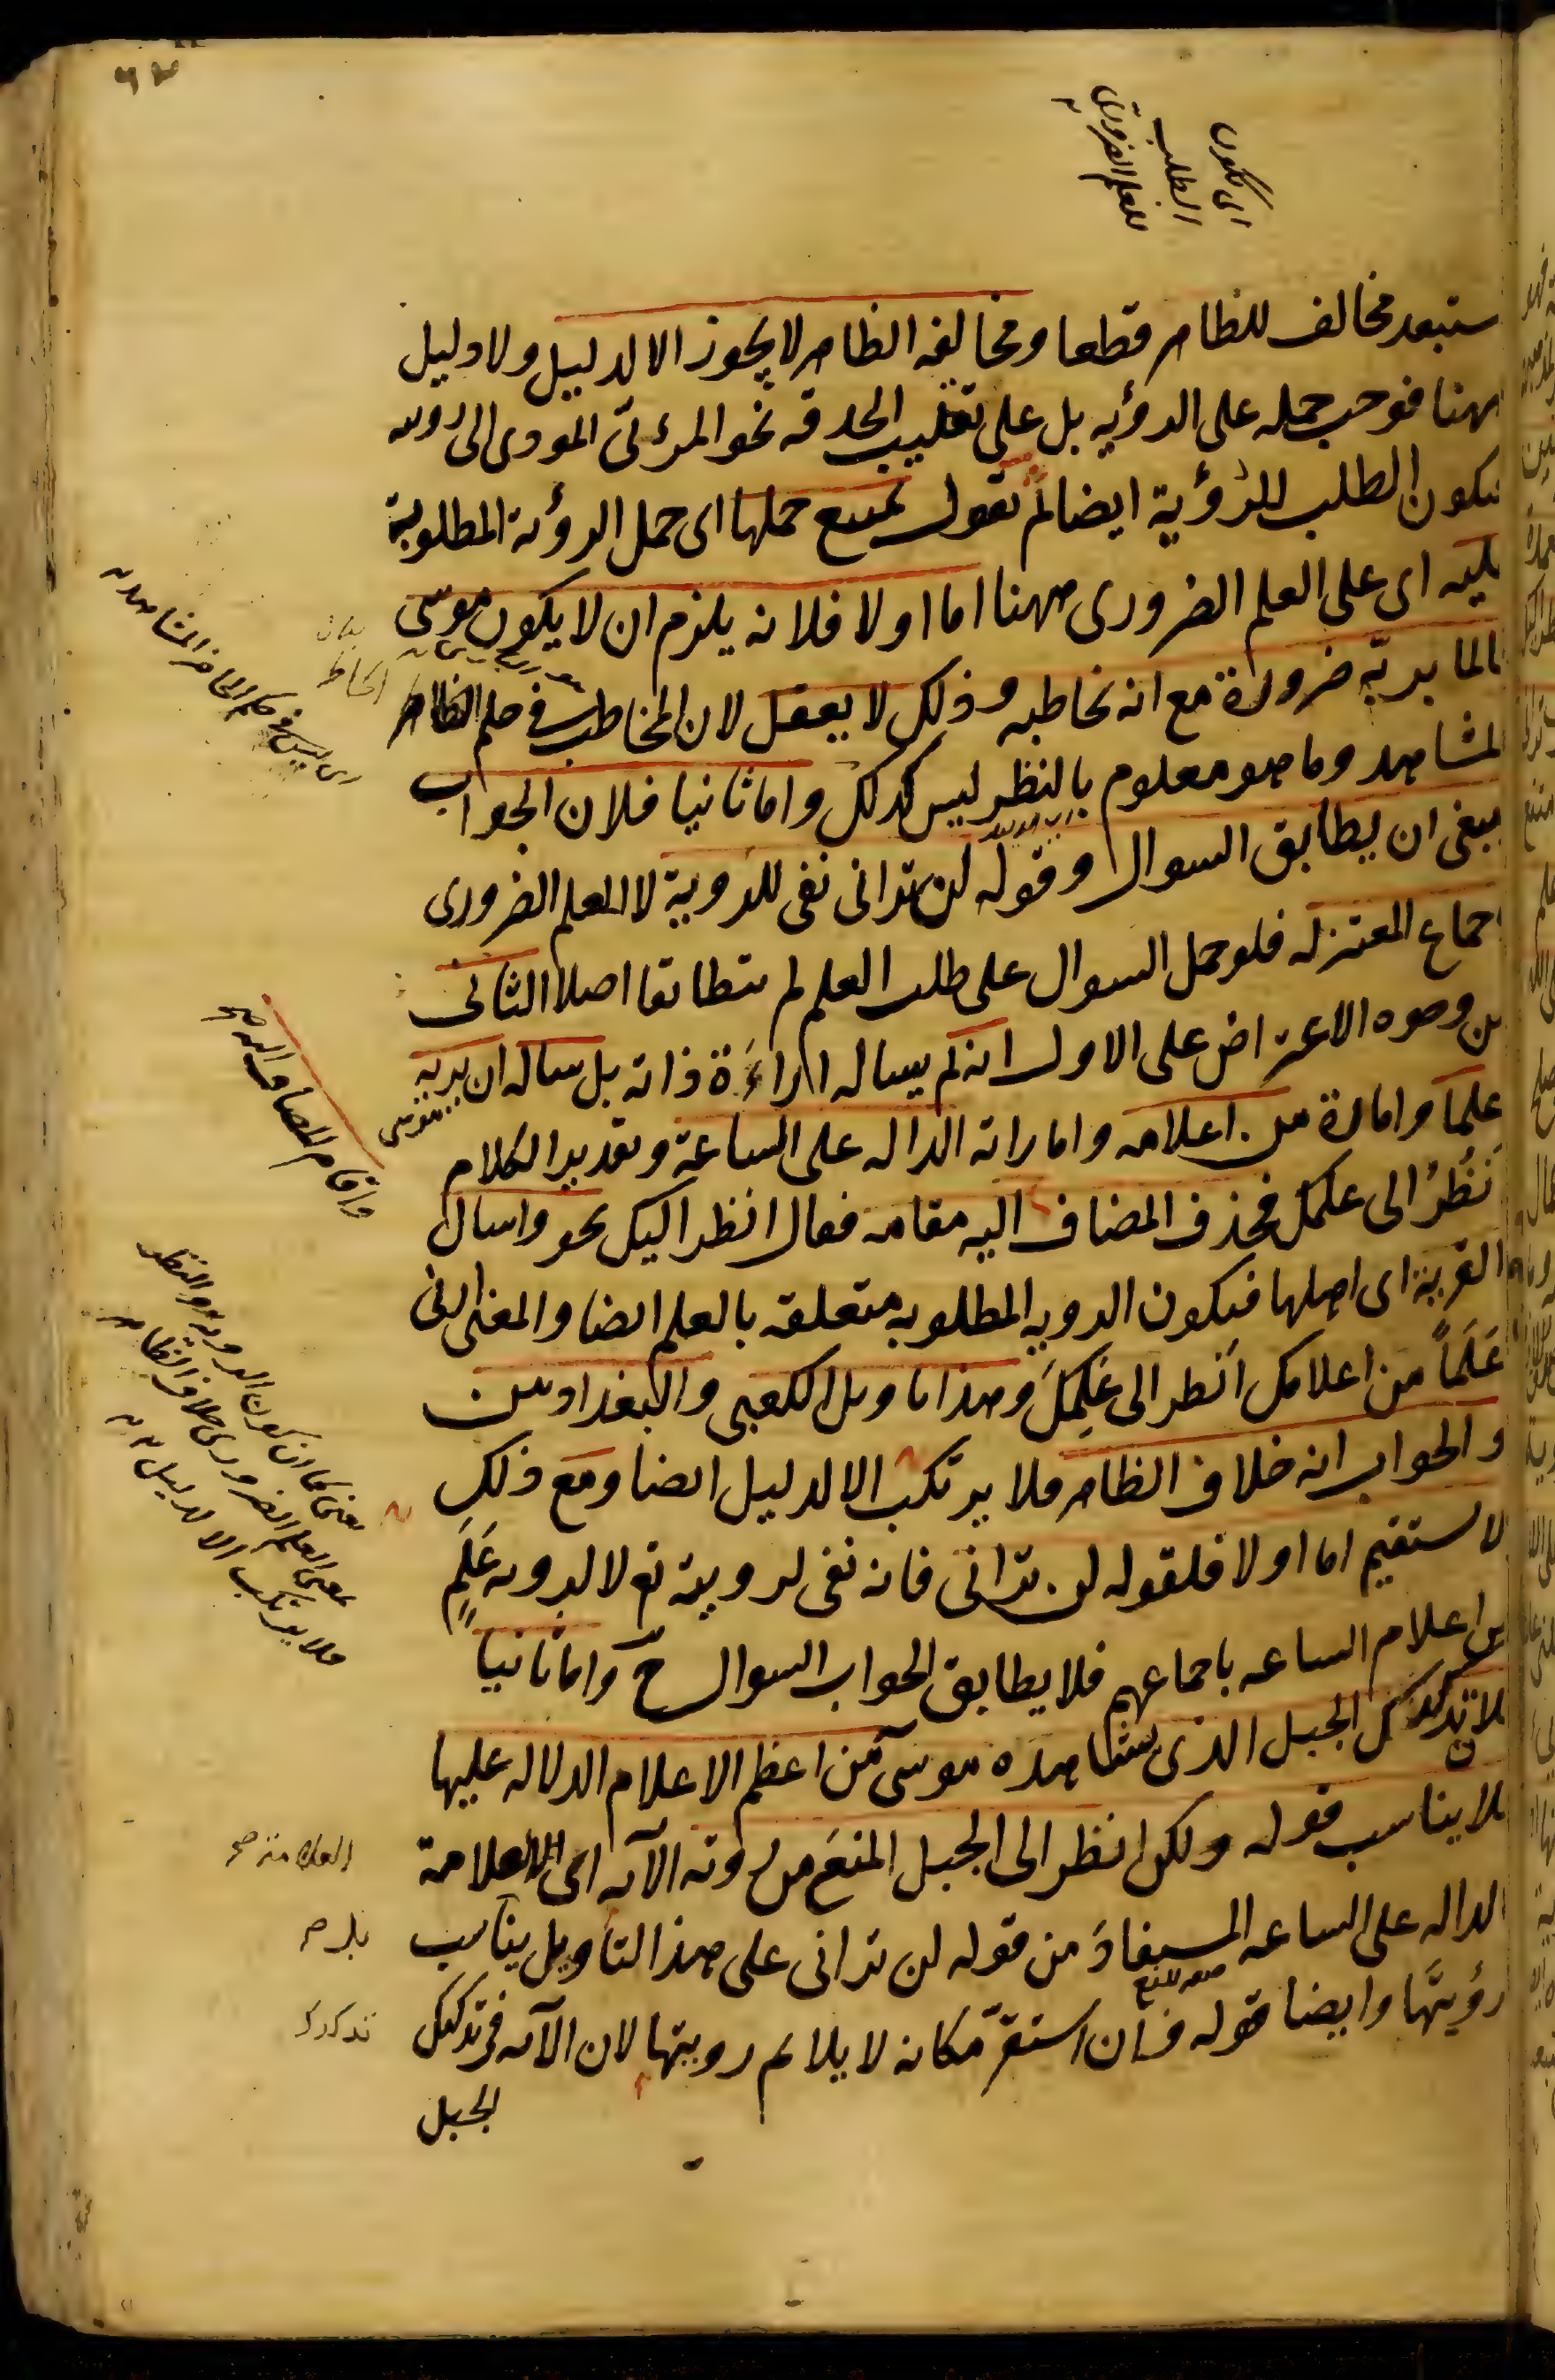 اى تكون
الطلب
للعلم الضرورى
ستبعد مخالف للظاهر قطعا ومخالفة الظاهر لا يجوز الا لدليل ولا دليل
ههنا فوجب حمله على الرؤيه بل على تقليب الحدقه نحو المرئى المودى الى رويته
فيكون الطلب للرؤية ايضا ثم نقول يمتنع حملها اى حمل الرؤية المطلوبة
عليه اى على العلم الضرورى ههنا اما اولا فلانه يلزم ان لا يكون موسى
عالما بربّه ضرورة مع انه يخاطبه وذلك لا يعقل لان المخاطب فى حكم الظاهر
المشاهد وما هو معلوم بالنظر ليس كذلك واما ثانيا فلان الجواب
ينبغى ان يطابق السوال وقوله لن ترانى نفى للروية لا للعلم الضرورى
اجماع المعتزله فلو حمل السوال على طلب العلم لم يتطابقا اصلا الثانى
من وجوه الاعتراض على الاول انه لم يساله اراءة ذاته بل ساله ان يريه
علما وامارة من اعلامه واماراته الداله على الساعة وتقدير الكلام
انظُرْ الى علمك فحذف المضاف اليه مقامه فقال انظر اليك نحو واسال
القرية اى اهلها فيكون الرويه المطلوبه متعلقه بالعلم ايضا والمعنى ارنى
عَلَماً من اعلامك انظر الى عَلَمِكَ وهذا تاويل الكعبى والبغداديين
والجواب انه خلاف الظاهر فلا يرتكب الا لدليل ايضا ومع ذلك
لا يستقيم اما اولا فلقوله لن ترانى فانه نفى لرويته تع لا لرويه عَلَمٍ
من اعلام الساعه باجماعهم فلا يطابق الجواب السوال ح واما ثانيا
فلان تدكدك الجبل الذى شاهده موسى من اعظم الاعلام الداله عليها
فلا يناسب قوله ولكن انظر الى الجبل المنع من روية الآيه اى العلامة
الداله على الساعه المستفاد من قوله لن ترانى على هذا التأويل يناسب
رؤيتها وايضا قوله فان استقرّ مكانه لا يلائم رويتها لان الآيه فى تدكدك
الجبل
اى ليس فى حكم الحاضر المشاهد
واقام المضاف اليه صح
يعنى كما ان كون الرويه والنظر
بمعنى العلم الضرورى خلاف الظاهر
فلا يرتكب الا لدليل
العلامة صح
بل صح
تدكدك